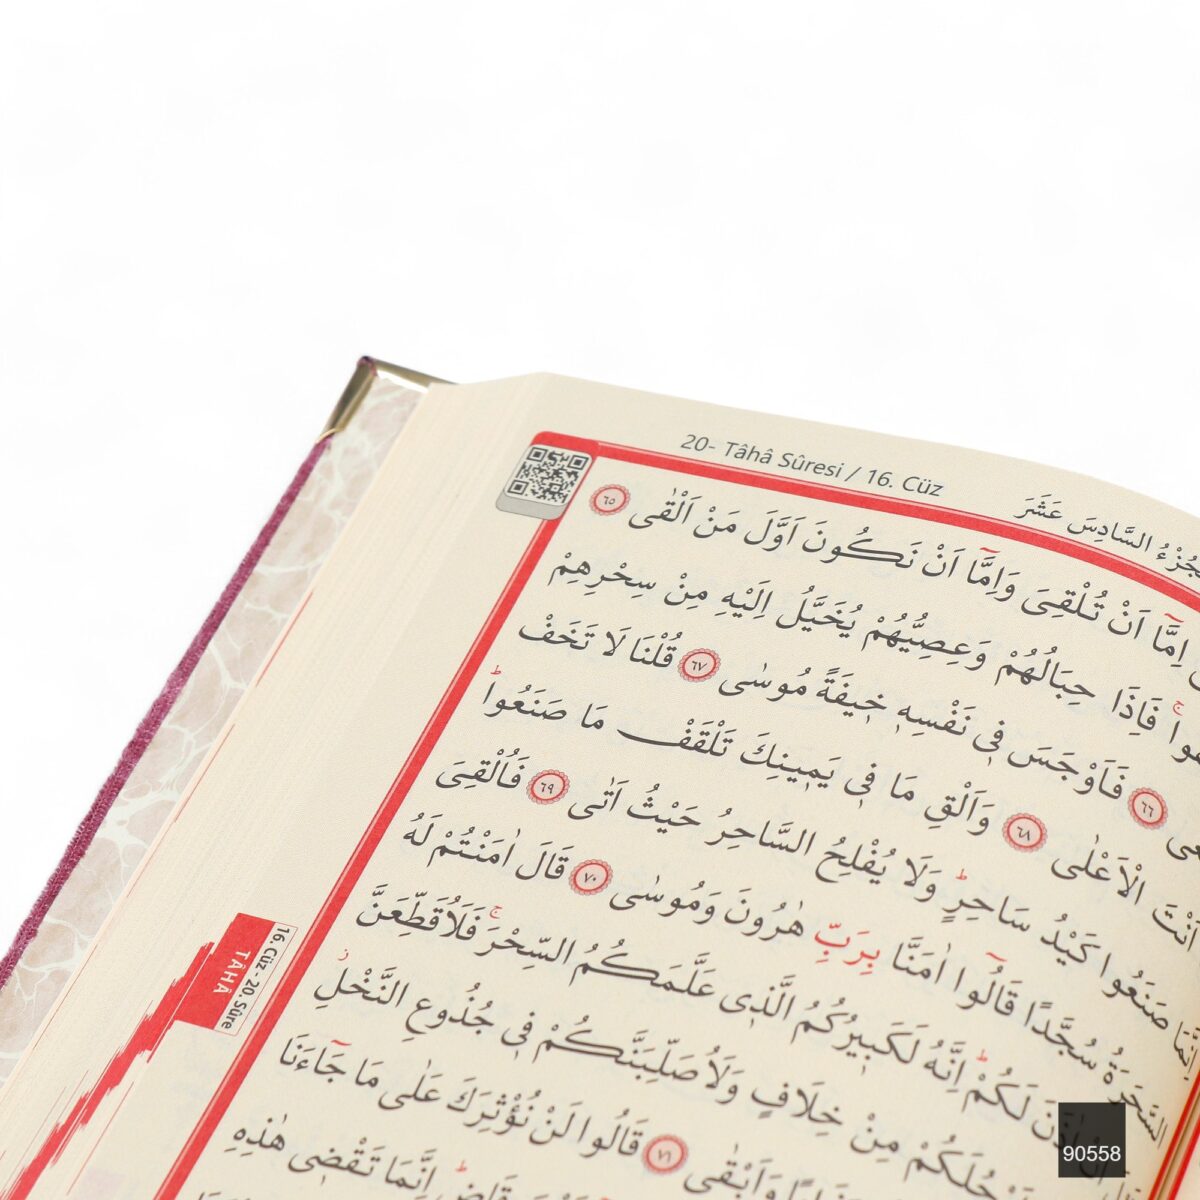 20- Tâhâ Sûresi / 16. Cüz
السَّادِسَ عَشَرَ
اِمَّٓا اَنْ تُلْقِىَ وَاِمَّٓا اَنْ نَكُونَ اَوَّلَ مَنْ اَلْقٰى ٦٥
فَاِذَا حِبَالُهُمْ وَعِصِيُّهُمْ يُخَيَّلُ اِلَيْهِ مِنْ سِحْرِهِمْ
٦٦ فَاَوْجَسَ فٖى نَفْسِهٖ خٖيفَةً مُوسٰى ٦٧ قُلْنَا لَا تَخَفْ
اَنْتَ الْاَعْلٰى ٦٨ وَاَلْقِ مَا فٖى يَمٖينِكَ تَلْقَفْ مَا صَنَعُواؕ
اِنَّمَا صَنَعُوا كَيْدُ سَاحِرٍؕ وَلَا يُفْلِحُ السَّاحِرُ حَيْثُ اَتٰى ٦٩ فَاُلْقِىَ
السَّحَرَةُ سُجَّدًا قَالُٓوا اٰمَنَّا بِرَبِّ هٰرُونَ وَمُوسٰى ٧٠ قَالَ اٰمَنْتُمْ لَهُ
لَكُمْؕ اِنَّهُ لَكَبٖيرُكُمُ الَّذٖى عَلَّمَكُمُ السِّحْرَۚ فَلَاُقَطِّعَنَّ
مِنْ خِلَافٍ وَلَاُصَلِّبَنَّكُمْ فٖى جُذُوعِ النَّخْلِؗ
وَاَبْقٰى ٧١ قَالُوا لَنْ نُؤْثِرَكَ عَلٰى مَا جَٓاءَنَا
اِنَّمَا تَقْضٖى هٰذِهِ
16. Cüz - 20. Sûre
TÂHÂ
90558